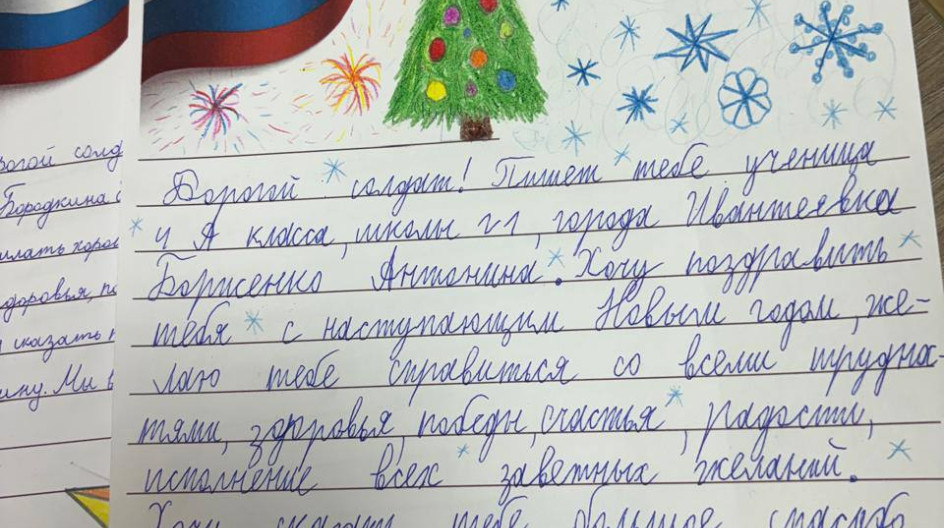 Дорогой солдат! Пишет тебе ученица
4 А класса, школы №1, города Ивантеевка
Борисенко Антонина. Хочу поздравить
тебя с наступающим Новым годом, же-
лаю тебе справиться со всеми трудно-
тями, здоровья, победы, счастья, радости,
исполнение всех заветных желаний.
Хочу сказать тебе большое спасибо
рогой солд
Бородкина
елать хорош
доровья, по
сказать
ину. Мы в